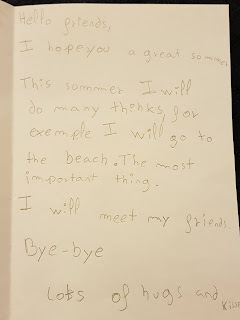 Hello friends,
I hope you a great sommer
This sommer I will
do many thinks, for
exemple I will go to
the beach. The most
important thing.
I will meet my friends.
Bye-bye
Lots of hugs and